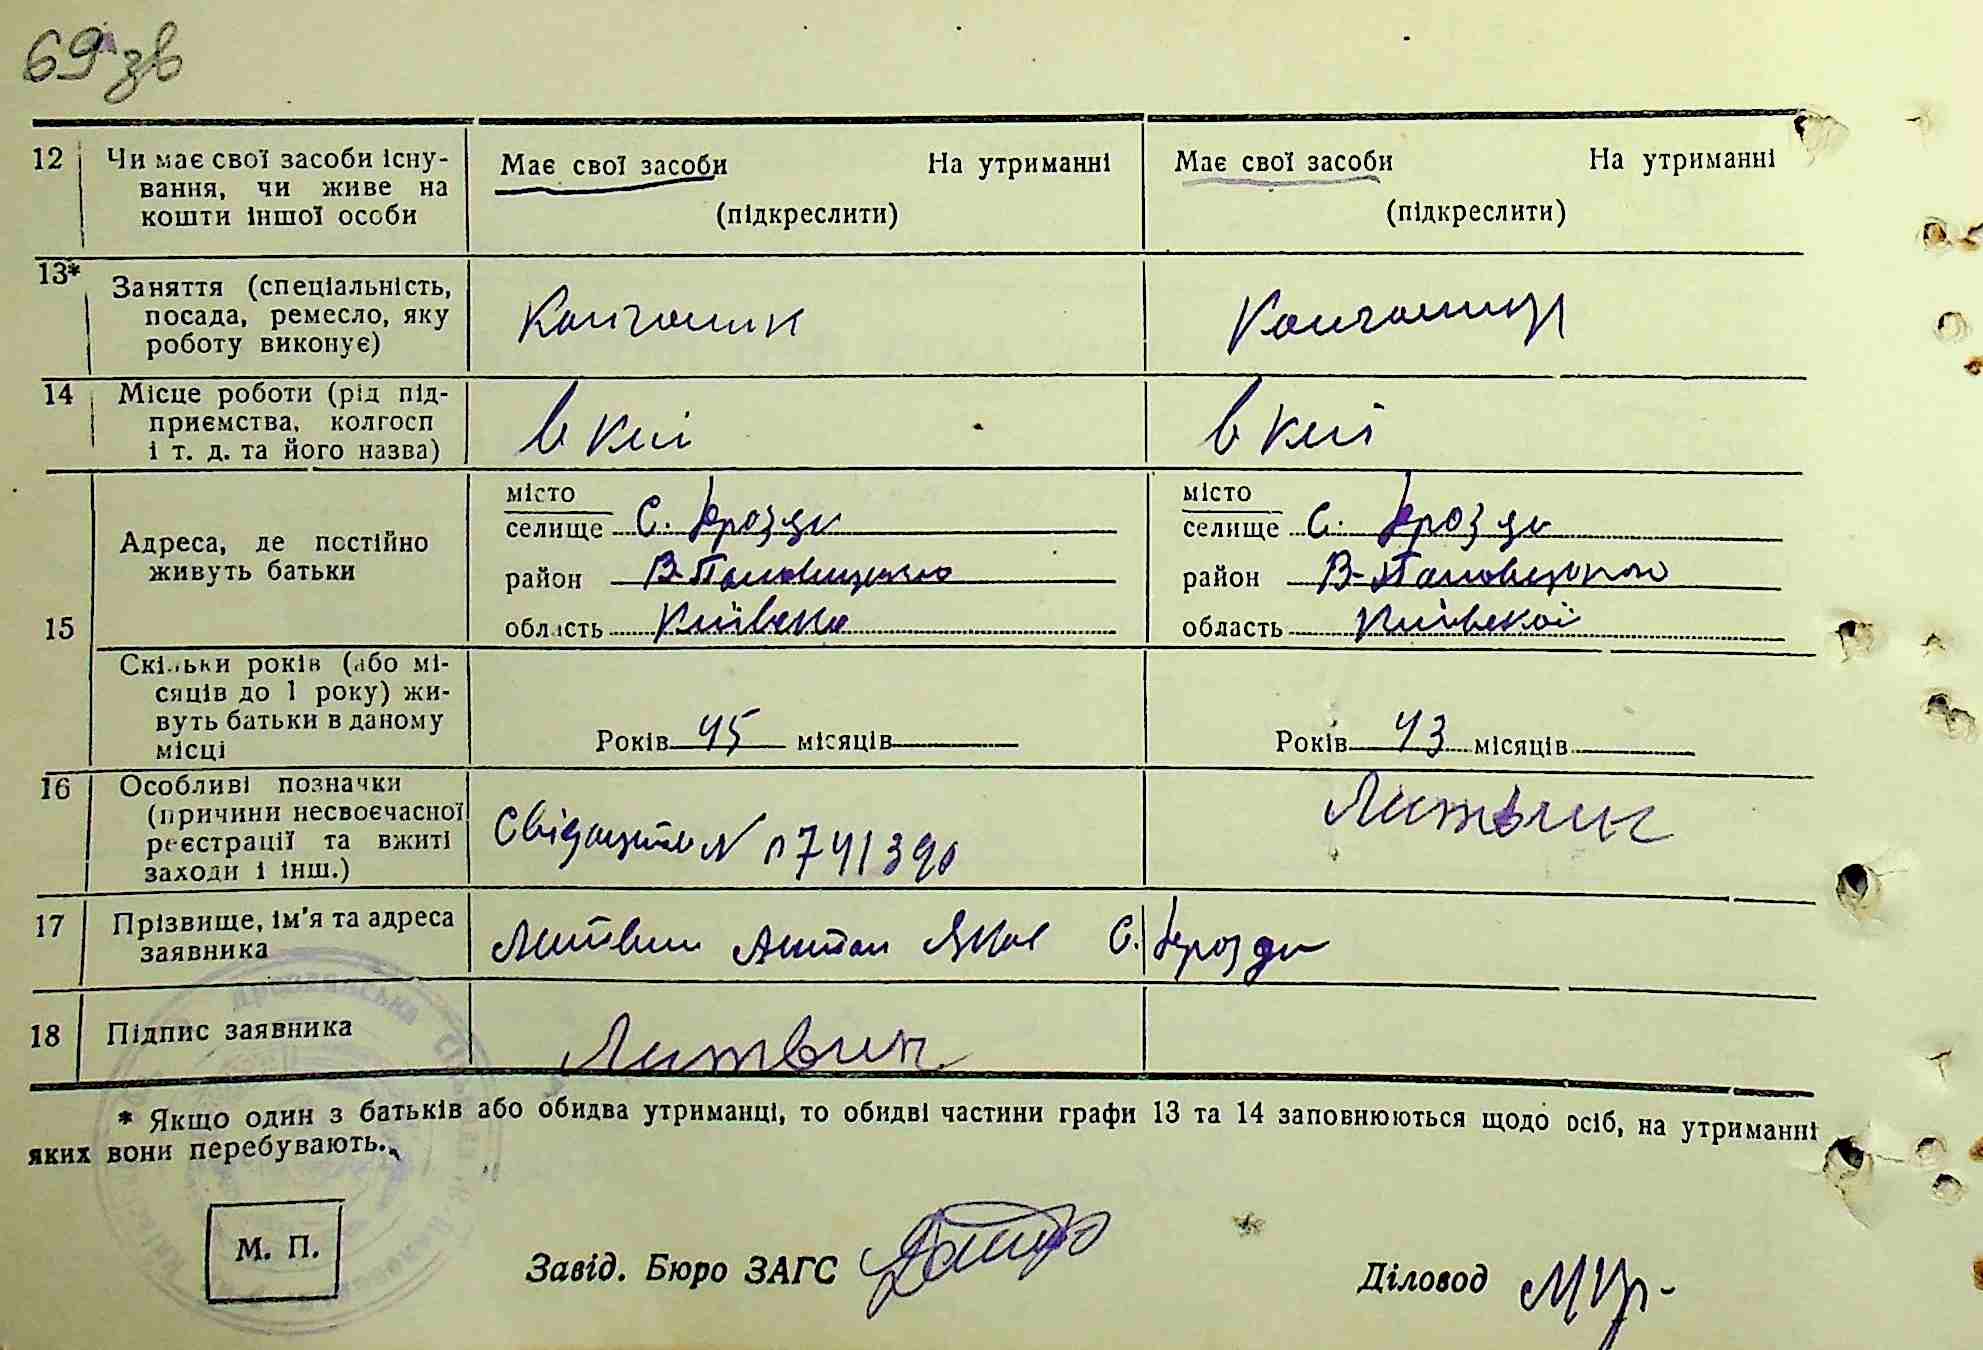 69 зв
12 Чи має свої засоби існу-
вання, чи живе на
кошти іншої особи
Має свої засоби На утриманні
(підкреслити)
Має свої засоби На утриманні
(підкреслити)
13* Заняття (спеціальність,
посада, ремесло, яку
роботу виконує)
Колгосник
Колгосниця
14 Місце роботи (рід під-
приємства, колгосп
і т. д. та його назва)
в кол
в кол
15
Адреса, де постійно
живуть батьки
місто
селище С. Дрозди
район В-Половецького
область Київсько
місто
селище С. Дрозди
район В-Половецького
область Київської
Скільки років (або мі-
сяців до 1 року) жи-
вуть батьки в даному
місці
Років 45 місяців
Років 43 місяців
16 Особливі позначки
(причини несвоєчасної
реєстрації та вжиті
заходи і інш.)
Свідоцтво N 741390
Литвин
17 Прізвище, ім'я та адреса
заявника
Литвин Антон Яков С. Дрозди
18 Підпис заявника
Литвин
* Якщо один з батьків або обидва утриманці, то обидві частини графи 13 та 14 заповнюються щодо осіб, на утриманні
яких вони перебувають.
М. П.
Завід. Бюро ЗАГС
Діловод